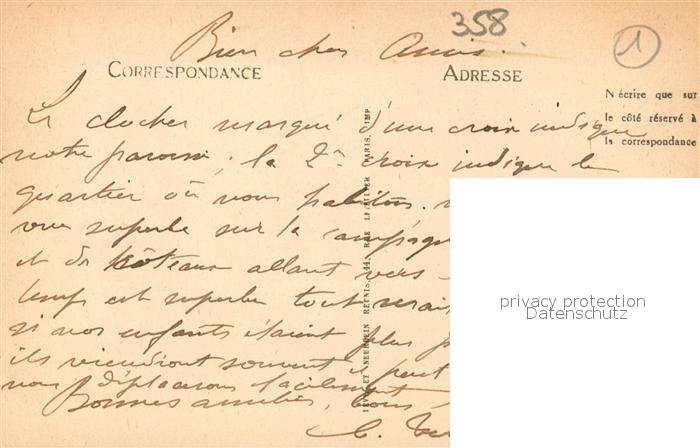 358
1
Bien chers Amis.
CORRESPONDANCE
ADRESSE
N'écrire que sur
le côté réservé à
la correspondance
Le clocher marqué d'une croix indique
notre paroisse, la 2me croix indique le
quartier où nous habitons.
vue superbe sur la campagne
et des côteaux allant vers
temps est superbe tout serait
si nos enfants étaient plus
ils viendront souvent
nous déplacerons facilement
Bonnes amitiés,
LEVY ET NEURDEIN REUNIS, 44, RUE LETELLIER, PARIS, IMP.
privacy protection
Datenschutz